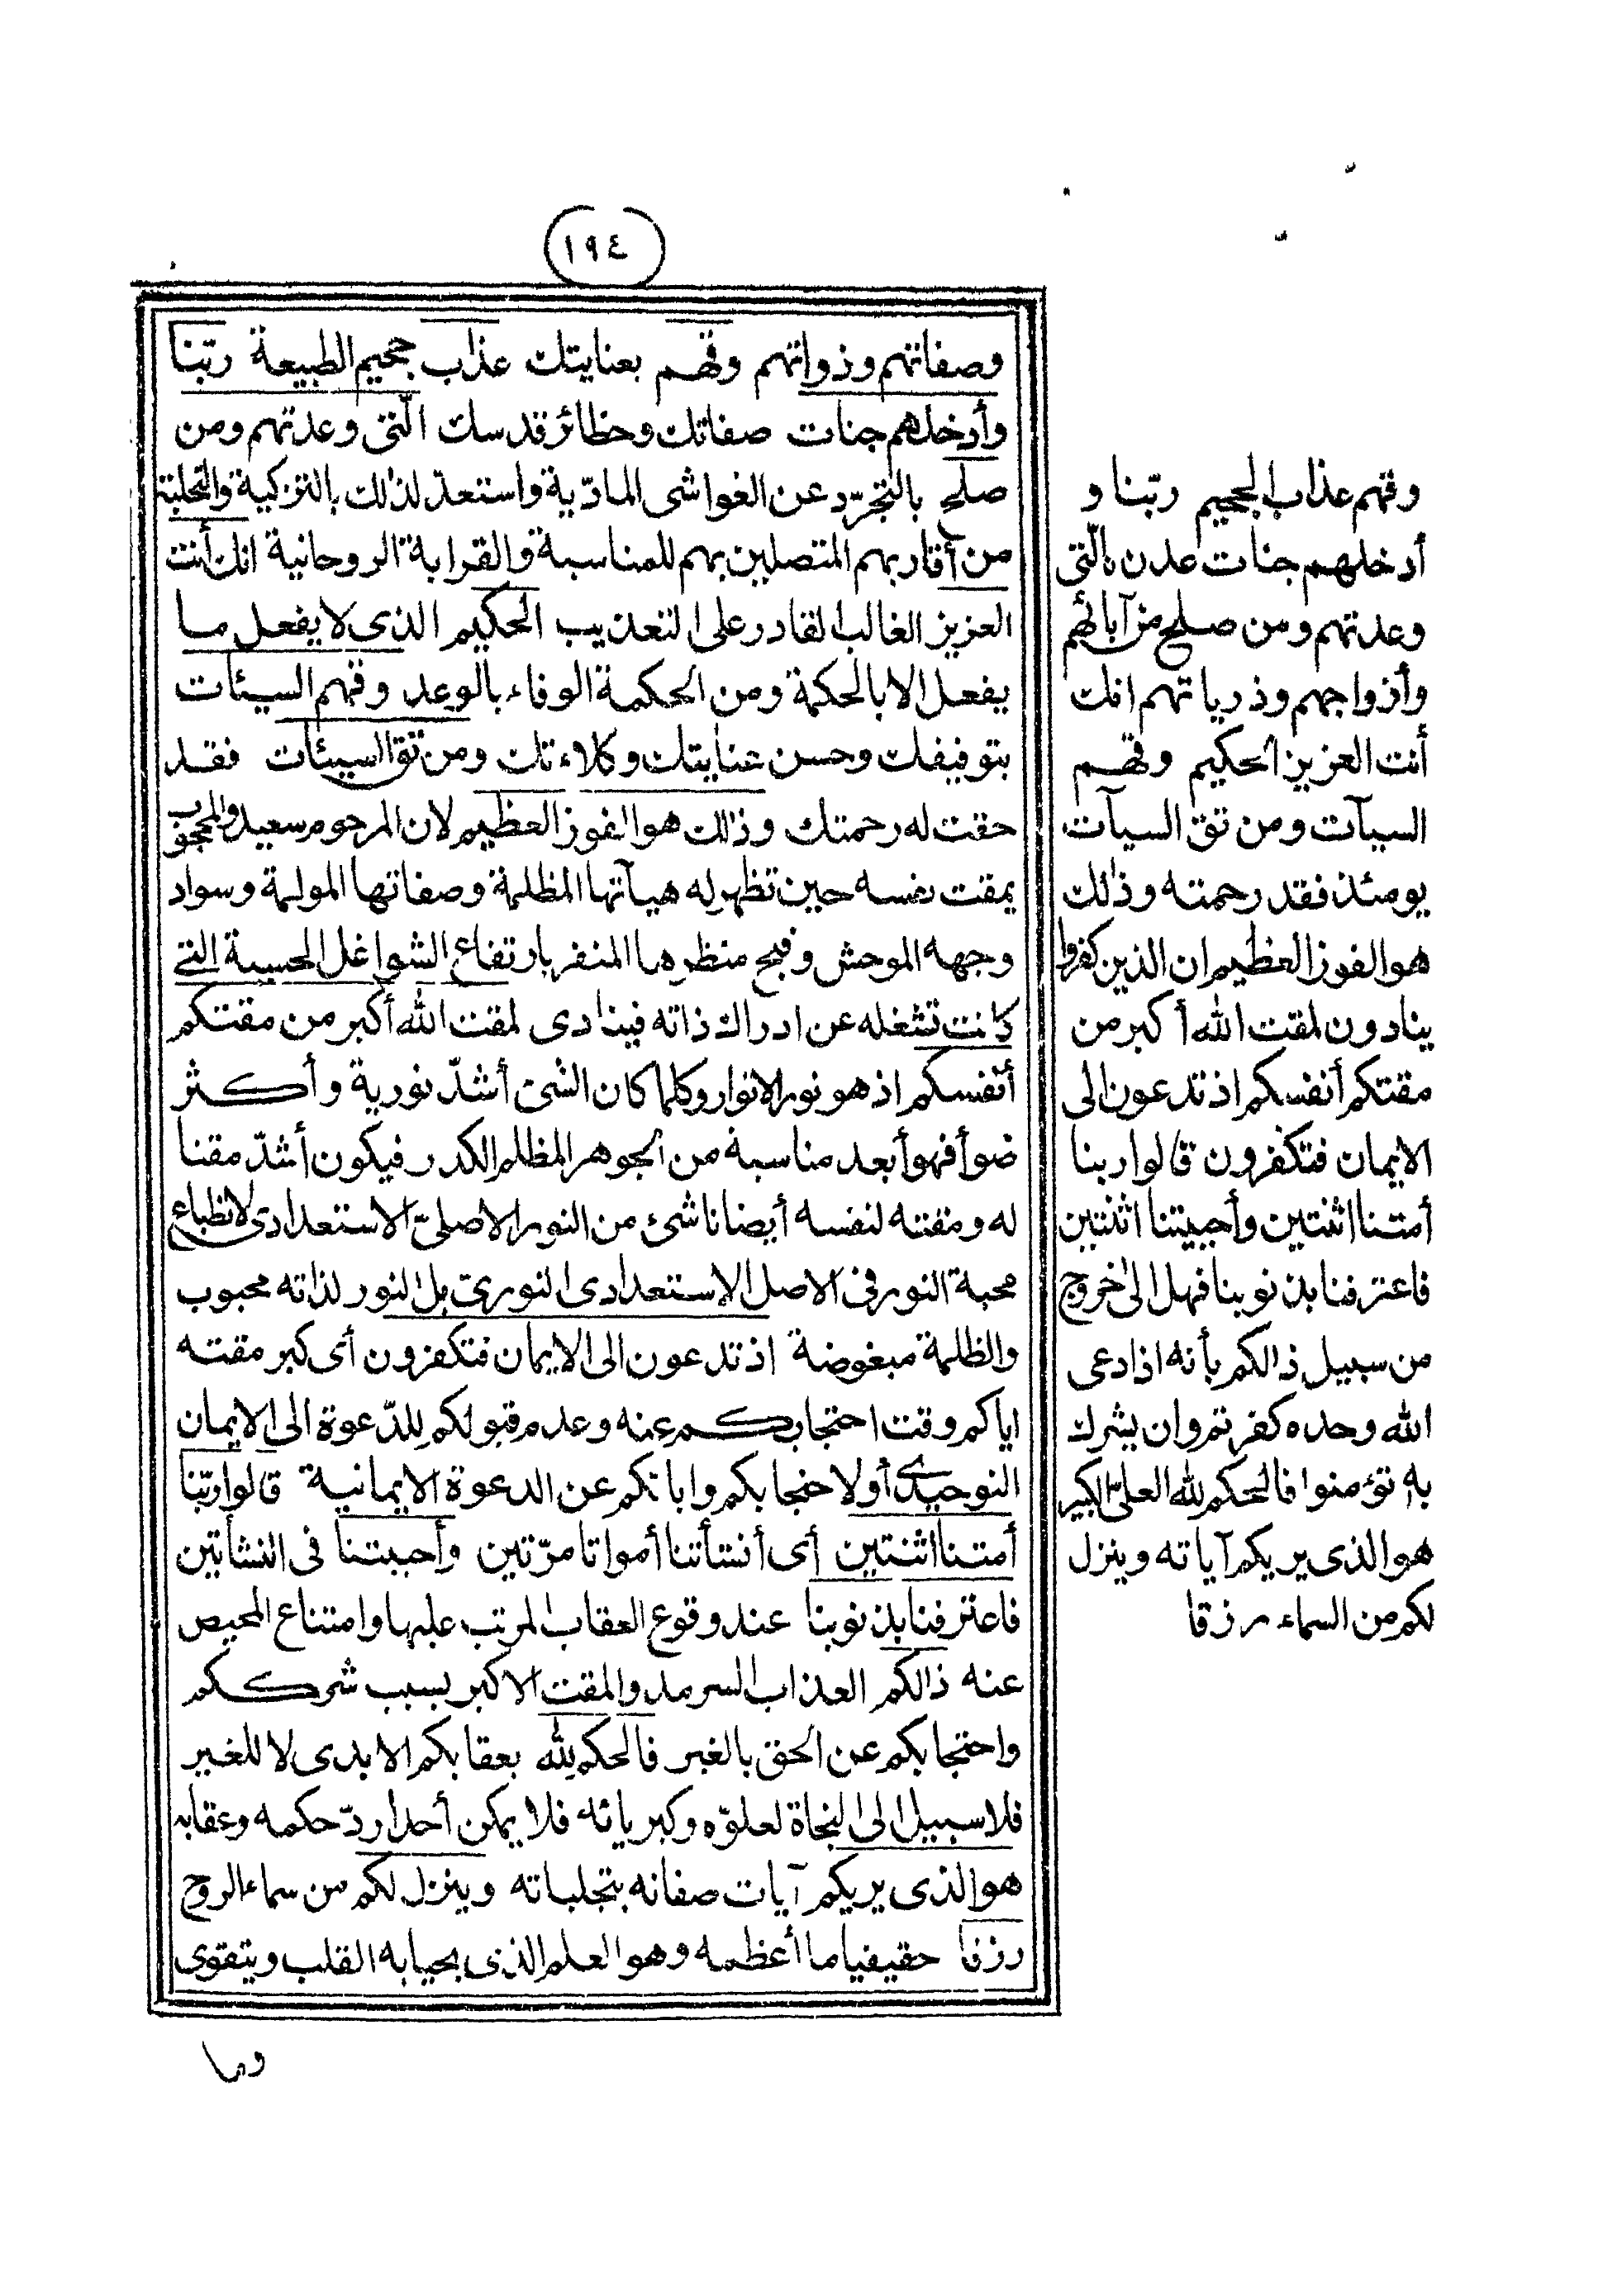 (١٩٤)
وصفاتهم وذواتهم وقهم بعنايتك عذاب جحيم الطبيعة ربّنا
وأدخلهم جنات صفاتك وحظائر قدسك الّتى وعدتهم ومن
صلح بالتجرّد عن الغواشى المادّية واستعدّ لذلك بالتزكية والتحلية
من أقاربهم المتصلين بهم للمناسبة والقرابة الروحانية انك أنت
العزيز الغالب القادر على التعذيب الحكيم الذى لا يفعل ما
يفعل الا بالحكمة ومن الحكمة الوفاء بالوعد وقهم السيئات
بتوفيقك وحسن عنايتك وكلاءتك ومن تق السيئات فقد
حقت له رحمتك وذلك هو الفوز العظيم لان المرحوم سعيد والمحجوب
يمقت نفسه حين تظهر له هيآتها المظلمة وصفاتها المولمة وسواد
وجهه الموحش وقبح منظرها المنفر بارتفاع الشواغل الحسية التى
كانت تشغله عن ادراك ذاته فينادى لمقت الله أكبر من مقتكم
أنفسكم اذ هو نور الانوار وكلما كان الشئ أشدّ نورية وأكثر
ضوأ فهو أبعد مناسبة من الجوهر المظلم الكدر فيكون أشدّ مقتا
له ومقته لنفسه أيضا ناشئ من النور الاصلىّ الاستعدادى لانطباع
محبة النور فى الاصل الاستعدادى النورىّ بل النور لذاته محبوب
والظلمة مبغوضة اذ تدعون الى الايمان فتكفرون أى كبر مقته
اياكم وقت احتجابكم عنه وعدم قبولكم للدّعوة الى الايمان
التوحيدى أو لاحتجابكم وابائكم عن الدعوة الايمانية قالوا ربّنا
أمتنا اثنتين أى أنشأتنا أمواتا مرّتين وأحييتنا فى النشأتين
فاعترفنا بذنوبنا عند وقوع العقاب المرتب عليها وامتناع المحيص
عنه ذالكم العذاب السرمد والمقت الاكبر بسبب شرككم
واحتجابكم عن الحق بالغير فالحكم لله بعقابكم الابدى لا للغير
فلا سبيل الى النجاة لعلوّه وكبريائه فلا يمكن أحدا ردّ حكمه وعقابه
هو الذى يريكم آيات صفاته بتجلياته وينزل لكم من سماء الروح
رزقا حقيقيا ما أعظمه وهو العلم الذى يحيا به القلب ويتقوى
وقهم عذاب الجحيم ربّنا و
أدخلهم جنات عدن الّتى
وعدتهم ومن صلح من آبائهم
وأزواجهم وذرياتهم انك
أنت العزيز الحكيم وقهم
السيآت ومن تق السيآت
يومئذ فقد رحمته وذلك
هو الفوز العظيم ان الذين كفروا
ينادون لمقت الله أكبر من
مقتكم أنفسكم اذ تدعون الى
الايمان فتكفرون قالوا ربنا
أمتنا اثنتين وأحييتنا اثنتين
فاعترفنا بذنوبنا فهل الى خروج
من سبيل ذالكم بأنه اذا دعى
الله وحده كفرتم وان يشرك
به تؤمنوا فالحكم لله العلىّ الكبير
هو الذى يريكم آياته وينزل
لكم من السماء رزقا
وما